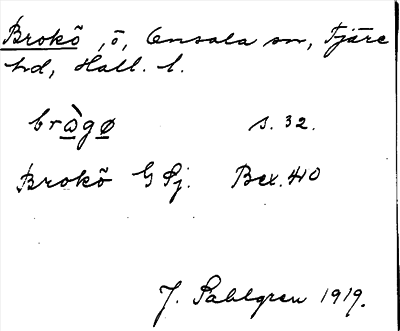 Brokö, ö, Onsala sn, Fjäre
hd, Hall. l.
bràgø s. 32.
Brokö G Sj. Bex. 410
J. Sahlgren 1919.